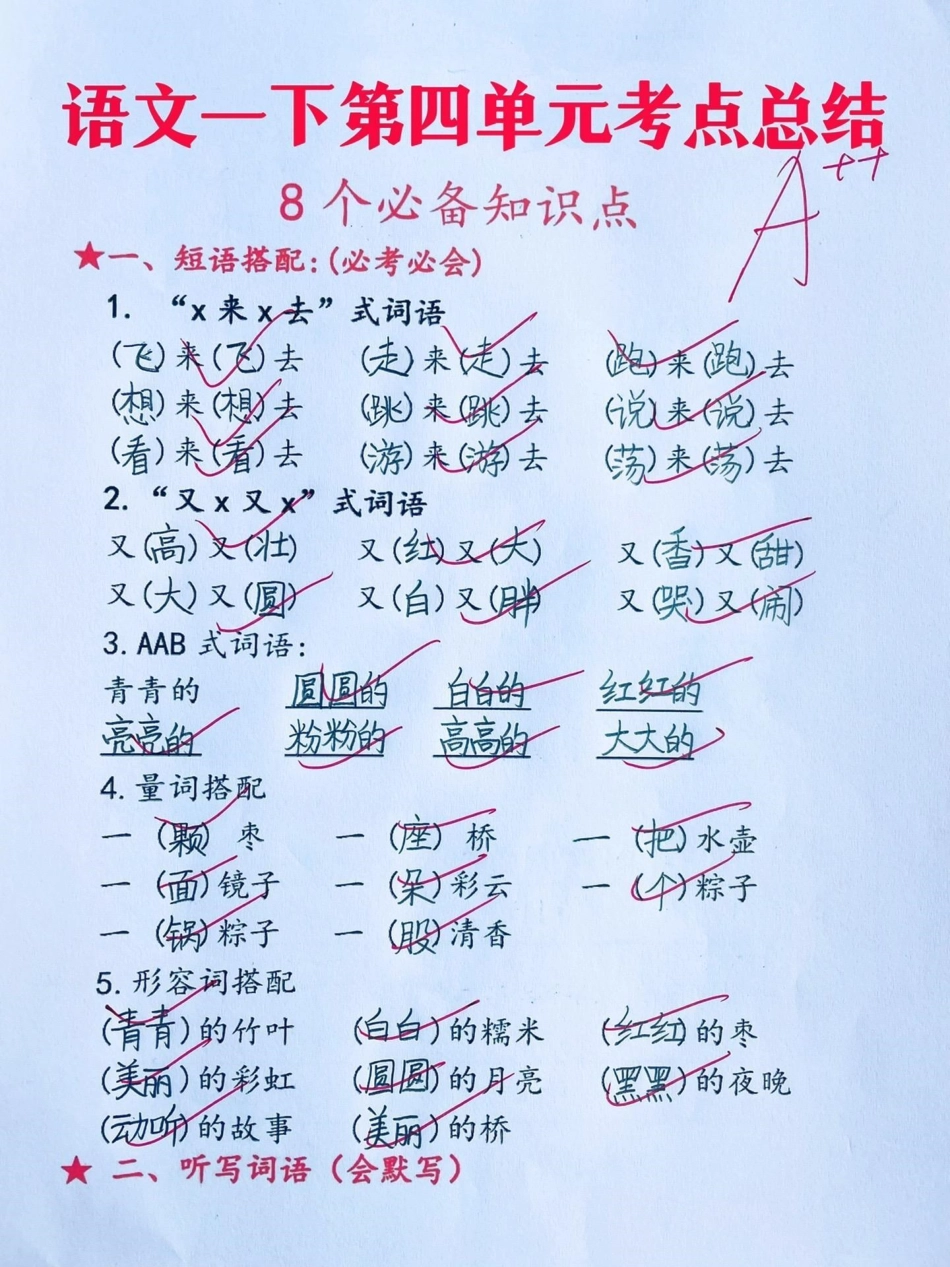 语文一下第四单元考点总结
A++
8个必备知识点
★一、短语搭配:(必考必会)
1. “x来x去”式词语
(飞)来(飞)去 (走)来(走)去 (跑)来(跑)去
(想)来(想)去 (跳)来(跳)去 (说)来(说)去
(看)来(看)去 (游)来(游)去 (荡)来(荡)去
2. “又x又x”式词语
又(高)又(壮) 又(红)又(大) 又(香)又(甜)
又(大)又(圆) 又(白)又(胖) 又(哭)又(闹)
3. AAB式词语:
青青的 圆圆的 白白的 红红的
亮亮的 粉粉的 高高的 大大的
4. 量词搭配
一(颗)枣 一(座)桥 一(把)水壶
一(面)镜子 一(朵)彩云 一(个)粽子
一(锅)粽子 一(股)清香
5. 形容词搭配
(青青)的竹叶 (白白)的糯米 (红红)的枣
(美丽)的彩虹 (圆圆)的月亮 (黑黑)的夜晚
(动听)的故事 (美丽)的桥
★ 二、听写词语(会默写)